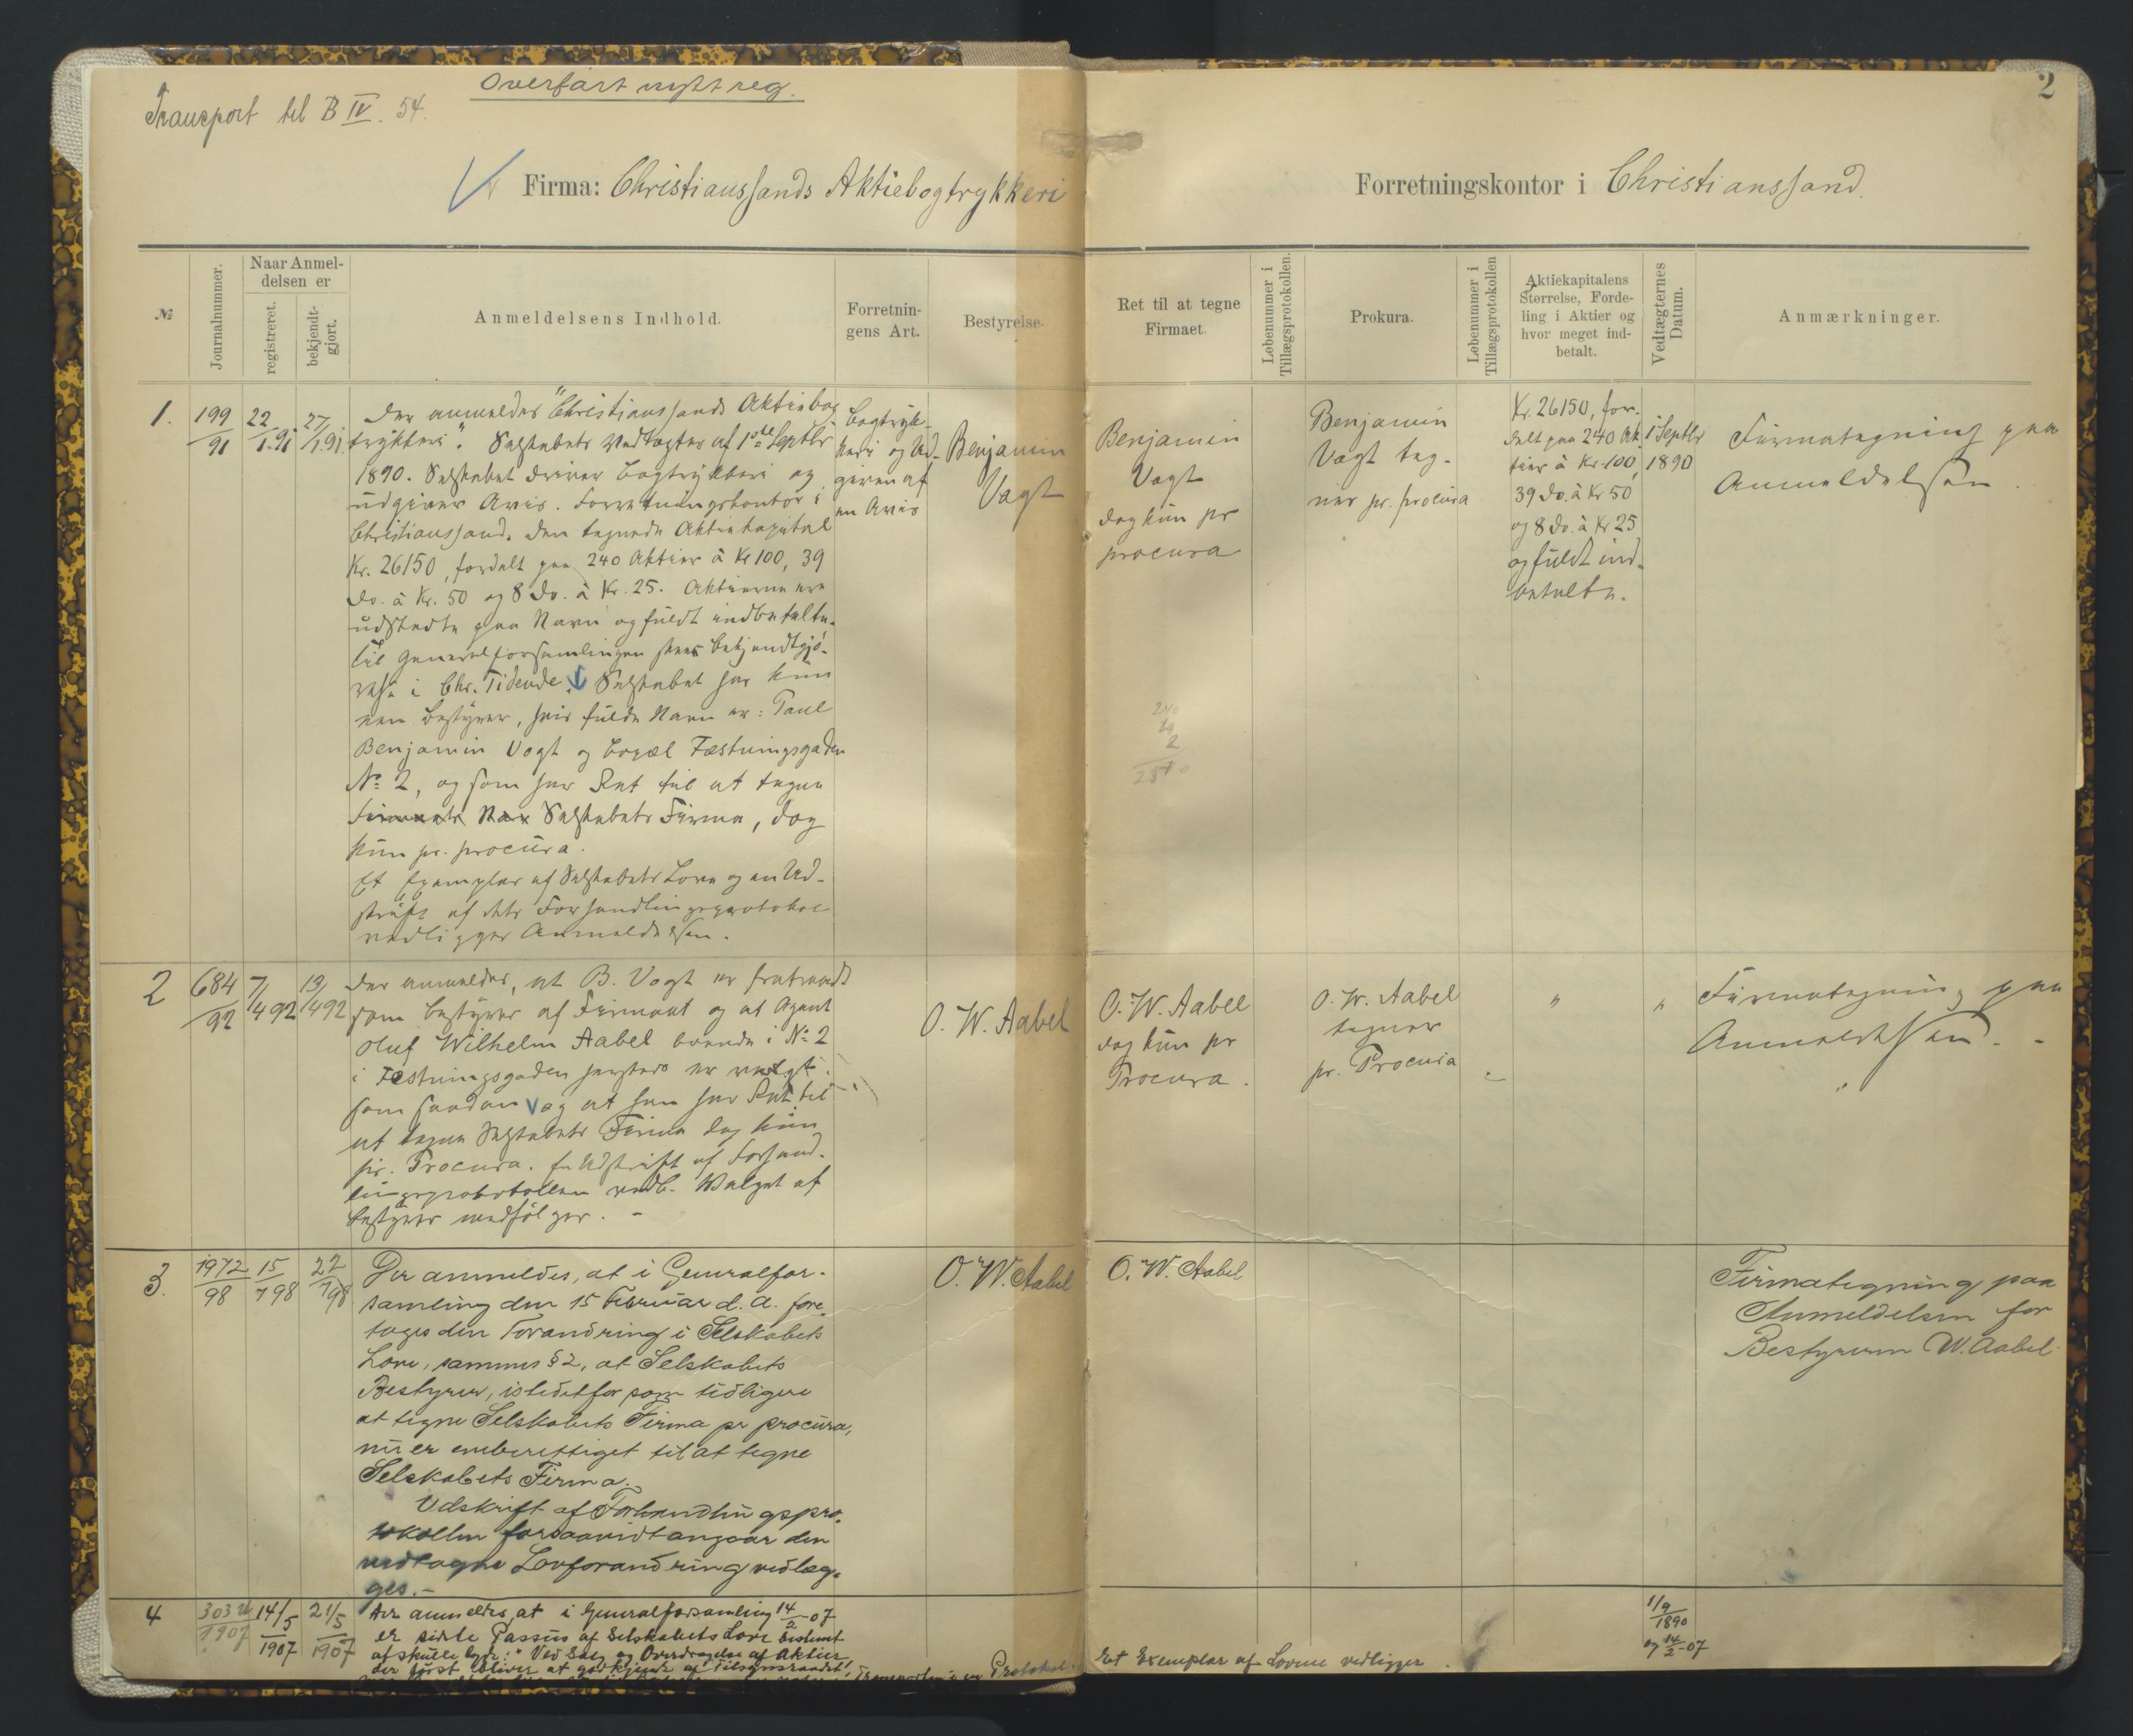 Overført nytt reg.
Transport til B IV. 54.
2
Firma: Christianssands Aktiebogtrykkeri
Forretningskontor i Christianssand.
№
Journalnummer.
Naar Anmel-
delsen er
registreret.
bekjendt-
gjort.
Anmeldelsens Indhold.
Forretnin-
gens Art.
Bestyrelse.
Ret til at tegne
Firmaet.
Løbenummer i
Tillægsprotokollen.
Prokura.
Løbenummer i
Tillægsprotokollen
Aktiekapitalens
Størrelse, Forde-
ling i Aktier og
hvor meget ind-
betalt.
Vedtægternes
Datum.
Anmærkninger.
1.
199/91
22/1.91.
27/1.91.
Der anmeldes "Christianssands Aktiebog
trykkeri". Selskabets Vedtægter af 1ste Septbr
1890. Selskabet driver Bogtrykkeri og
udgiver Avis. Forretningskontor i
Christianssand. Den tegnede Aktiekapital
Kr. 26150, fordelt paa 240 Aktier à Kr 100, 39
do. à Kr. 50 og 8 do. à Kr. 25. Aktierne ere
udstedte paa Navn og fuldt indbetalte.
Til Generalforsamlingen skeer bekjendtgjø-
relse i Chr. Tidende. Selskabet har kun
een Bestyrer, hvis fulde Navn er: Paul
Benjamin Vogt og Bopæl Fæstningsgaden
No 2, og som har Ret til at tegne
Firmaets Nav Selskabets Firma, dog
kun pr. procura.
Et Exemplar af Selskabets Love og en Ud-
skrift af dets Forhandlingsprotokol
vedligger Anmeldelsen.
Bogtryk-
keri og Ud-
given af
en Avis
Benjamin
Vogt
Benjamin
Vogt
dog kun pr
procura
240
39
2
Benjamin
Vogt teg-
ner pr. procura
Kr. 26150, for-
delt paa 240 Ak-
tier à Kr 100,
39 do. à Kr 50
og 8 do. à Kr 25
og fuldt ind-
betalte.
1 Septbr
1890
Firmategning paa
Anmeldelsen.
2
684/92
7/4 92
13/4 92
Der anmeldes, at B. Vogt er fratraadt
som Bestyrer af Firmaet og at Agent
Oluf Wilhelm Aabel boende i No 2
i Fæstningsgaden hersteds er valgt
som saadan og at han har Ret til
at tegne Selskabets Firma dog kun
pr. Procura. En Udskrift af Forhand-
lingsprotokollen vedk. Valget af
Bestyrer medfølger. -
O. W. Aabel
O. W. Aabel
dog kun pr
Procura.
O. W. Aabel
tegner
pr. Procura
"
"
Firmategning paa
Anmeldelsen. -
3.
1972/98
15/7 98
22/7 98
Der anmeldes, at i Generalfor-
samling den 15 Februar d. A. fore-
toges den Forandring i Selskabets
Love, sammes § 2, at Selskabets
Bestyrer, istedetfor som tidligere
at tegne Selskabets Firma pr procura,
nu er emberettiget til at tegne
Selskabets Firma.
Udskrift af Forhandlingspro-
tokollen forsaavidt angaar den
vedtagne Lovforandring vedlæg-
ges.-
O. W. Aabel
O. W. Aabel
Firmategning paa
Anmeldelsen for
Bestyreren W. Aabel.
4
14/5 1907
21/5 1907
Der anmeldes, at i Generalforsamling 14/2-07
er sidste Passus af Selskabets Love bestemt
at skulle lyde: "Ved Salg og Overdragelse af Aktier,
der først bliver at godkjende af Tilsynsraadet,
Protokol.
Et Exemplar af Lovene vedligger.
1/9 1890
og 14/2-07